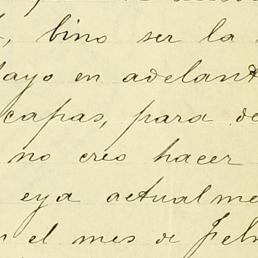 , bino ser la
ayo en adelant
capas, para de
no creo hacer
eya actualme
el mes de Feb